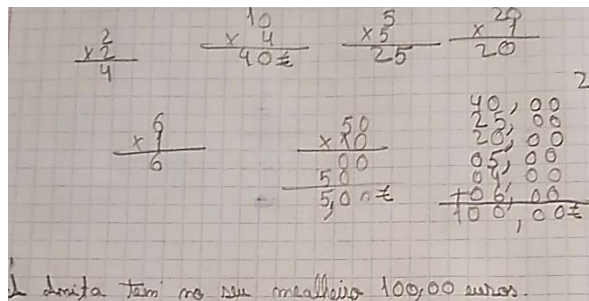 2
x 2
4
10
x 4
40€
5
x 5
25
20
x 1
20
6
x 1
6
50
x 10
00
50
5,00€
2
40,00
25,00
20,00
05,00
04,00
+ 06,00
100,00€
tem no seu mealheiro 100,00 euros.